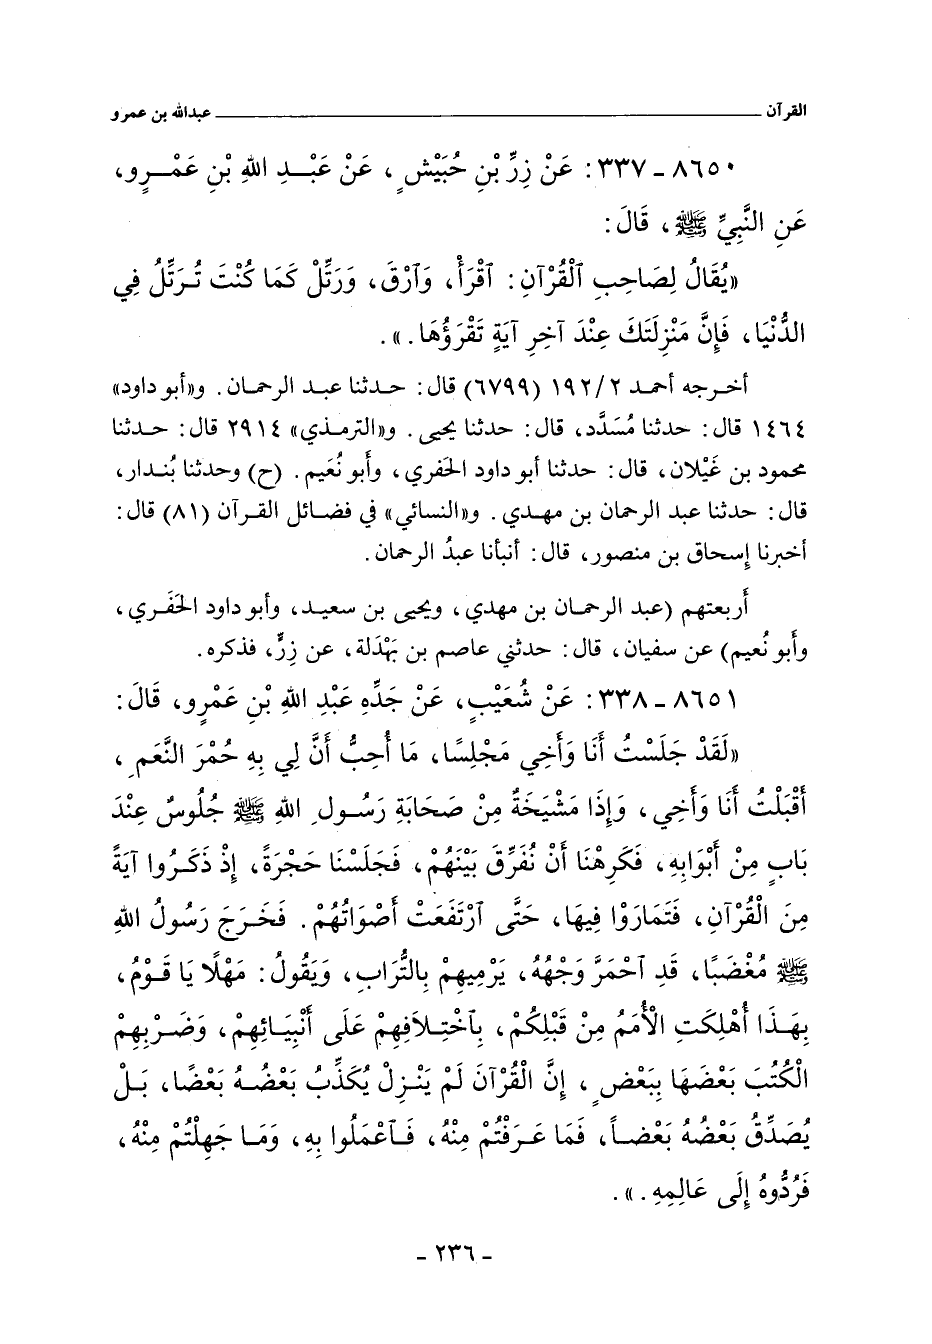 القرآن ــــــــــــــــــــــــــــــــــــــــ عبدالله بن عمرو
٨٦٥٠ ـ ٣٣٧: عَنْ زِرِّ بْنِ حُبَيْشٍ، عَنْ عَبْـدِ اللهِ بْنِ عَمْـرٍو،
عَنِ النَّبِيِّ ﷺ، قَالَ:
«يُقَالُ لِصَاحِبِ ٱلْقُرْآنِ: ٱقْرَأْ، وَٱرْقَ، وَرَتِّلْ كَمَا كُنْتَ تُـرَتِّلُ فِي
الدُّنْيَا، فَإِنَّ مَنْزِلَتَكَ عِنْدَ آخِرِ آيَةٍ تَقْرَؤُهَا.».
أخـرجه أحمـد ١٩٢/٢ (٦٧٩٩) قال: حـدثنا عبـد الرحمـان. و«أبو داود»
١٤٦٤ قال: حدثنا مُسَدَّد، قال: حدثنا يحيى. و«الترمـذي» ٢٩١٤ قال: حـدثنا
محمود بن غَيْلان، قال: حدثنا أبو داود الحفري، وأبو نُعَيم. (ح) وحدثنا بُنـدار،
قال: حدثنا عبد الرحمان بن مهـدي. و«النسائي» في فضـائل القـرآن (٨١) قال:
أخبرنا إسحاق بن منصور، قال: أنبأنا عبدُ الرحمان.
أربعتهم (عبد الرحمـان بن مهدي، ويحيى بن سعيـد، وأبو داود الحَفَـري،
وأبو نُعيم) عن سفيان، قال: حدثني عاصم بن بَهْدَلة، عن زِرٍّ، فذكره.
٨٦٥١ ـ ٣٣٨: عَنْ شُعَيْبٍ، عَنْ جَدِّهِ عَبْدِ اللهِ بْنِ عَمْرٍو، قَالَ:
«لَقَدْ جَلَسْتُ أَنَا وَأَخِي مَجْلِسًا، مَا أُحِبُّ أَنَّ لِي بِهِ حُمْرَ النَّعَمِ،
أَقْبَلْتُ أَنَا وَأَخِي، وَإِذَا مَشْيَخَةٌ مِنْ صَحَابَةِ رَسُـولِ اللهِ ﷺ جُلُوسٌ عِنْدَ
بَابٍ مِنْ أَبْوَابِهِ، فَكَرِهْنَا أَنْ نُفَرِّقَ بَيْنَهُمْ، فَجَلَسْنَا حَجْرَةً، إِذْ ذَكَـرُوا آيَةً
مِنَ الْقُرْآنِ، فَتَمَارَوْا فِيهَا، حَتَّى ٱرْتَفَعَتْ أَصْوَاتُهُمْ. فَخَـرَجَ رَسُولُ اللهِ
ﷺ مُغْضَبًا، قَدِ ٱحْمَرَّ وَجْهُهُ، يَرْمِيهِمْ بِالتُّرَابِ، وَيَقُولُ: مَهْلًا يَا قَوْمُ،
بِهَـذَا أُهْلِكَتِ الْأُمَمُ مِنْ قَبْلِكُمْ، بِٱخْتِـلَافِهِمْ عَلَى أَنْبِيَـائِهِمْ، وَضَرْبِهِمْ
الْكُتُبَ بَعْضَهَا بِبَعْضٍ، إِنَّ الْقُرْآنَ لَمْ يَنْـزِلْ يُكَذِّبُ بَعْضُـهُ بَعْضًا، بَـلْ
يُصَدِّقُ بَعْضُهُ بَعْضـاً، فَمَا عَـرَفْتُمْ مِنْهُ، فَـٱعْمَلُوا بِهِ، وَمَـا جَهِلْتُمْ مِنْهُ،
فَرُدُّوهُ إِلَى عَالِمِهِ.».
ـ ٢٣٦ ـ